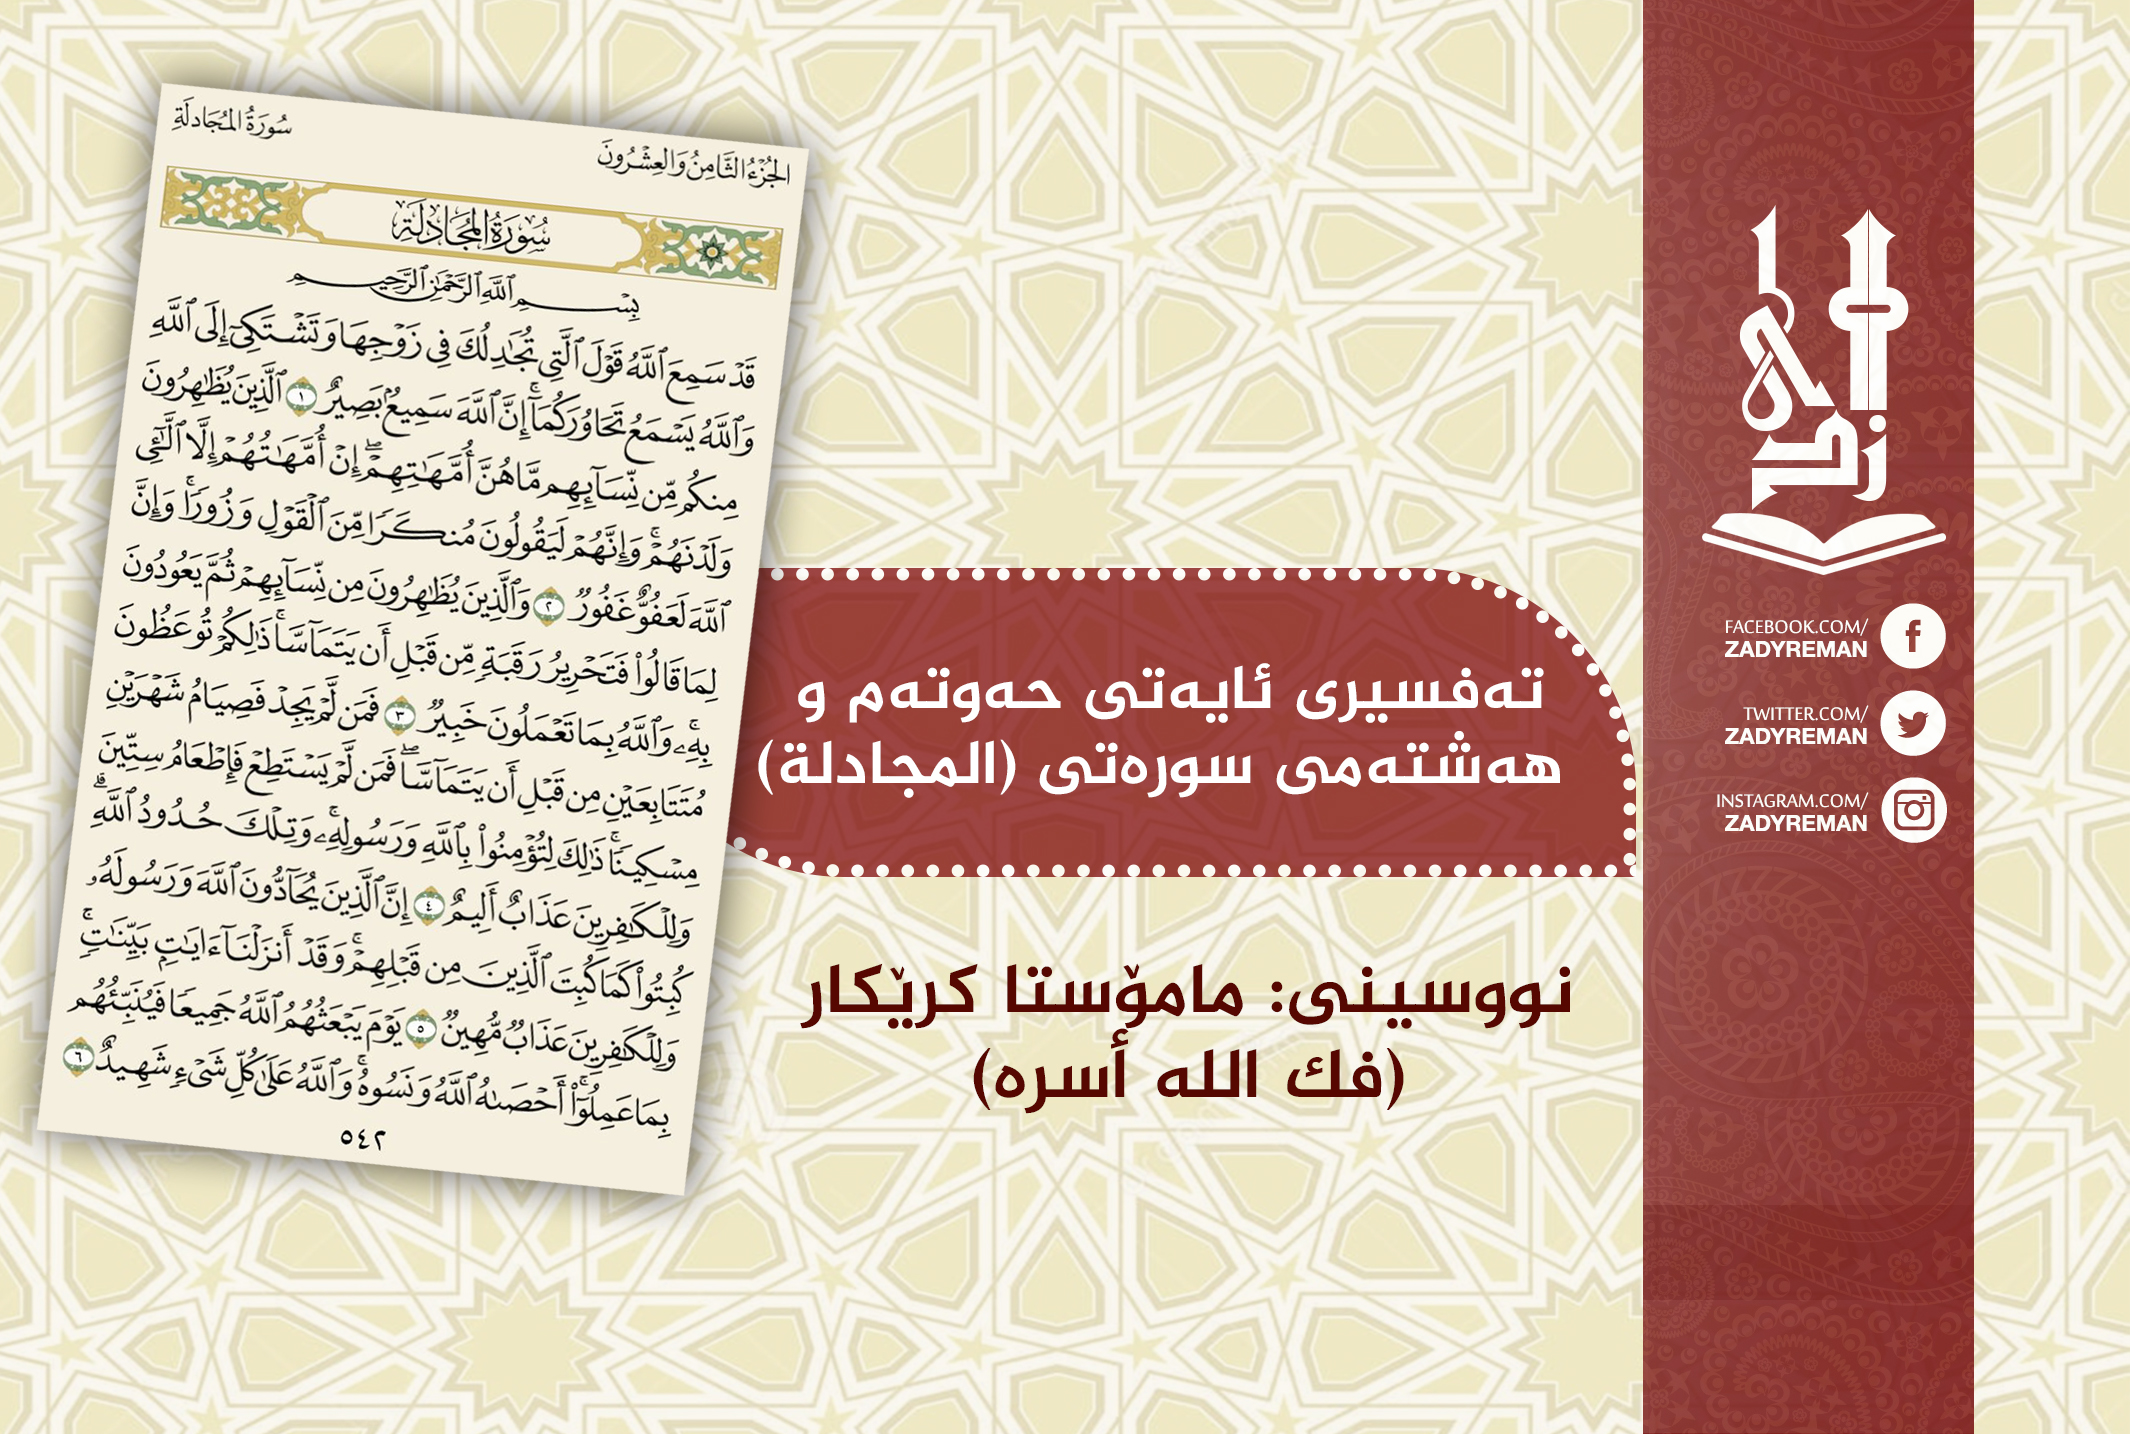 الجُزْءُ الثَّامِنُ وَالعِشْرُونَ
سُورَةُ المُجَادلَةِ
سُورَةُ المُجَادلَةِ
بِسْمِ ٱللَّهِ ٱلرَّحْمَٰنِ ٱلرَّحِيمِ
قَدْ سَمِعَ ٱللَّهُ قَوْلَ ٱلَّتِي تُجَٰدِلُكَ فِي زَوْجِهَا وَتَشْتَكِيٓ إِلَى ٱللَّهِ
وَٱللَّهُ يَسْمَعُ تَحَاوُرَكُمَآۚ إِنَّ ٱللَّهَ سَمِيعُۢ بَصِيرٌ ١ ٱلَّذِينَ يُظَٰهِرُونَ
مِنكُم مِّن نِّسَآئِهِم مَّا هُنَّ أُمَّهَٰتِهِمْۖ إِنْ أُمَّهَٰتُهُمْ إِلَّا ٱلَّٰٓـِٔي
وَلَدْنَهُمْۚ وَإِنَّهُمْ لَيَقُولُونَ مُنكَرًا مِّنَ ٱلْقَوْلِ وَزُورًاۚ وَإِنَّ
ٱللَّهَ لَعَفُوٌّ غَفُورٌ ٢ وَٱلَّذِينَ يُظَٰهِرُونَ مِن نِّسَآئِهِمْ ثُمَّ يَعُودُونَ
لِمَا قَالُوا۟ فَتَحْرِيرُ رَقَبَةٍ مِّن قَبْلِ أَن يَتَمَآسَّاۚ ذَٰلِكُمْ تُوعَظُونَ
بِهِۦۚ وَٱللَّهُ بِمَا تَعْمَلُونَ خَبِيرٌ ٣ فَمَن لَّمْ يَجِدْ فَصِيَامُ شَهْرَيْنِ
مُتَتَابِعَيْنِ مِن قَبْلِ أَن يَتَمَآسَّاۖ فَمَن لَّمْ يَسْتَطِعْ فَإِطْعَامُ سِتِّينَ
مِسْكِينًاۚ ذَٰلِكَ لِتُؤْمِنُوا۟ بِٱللَّهِ وَرَسُولِهِۦۚ وَتِلْكَ حُدُودُ ٱللَّهِۗ
وَلِلْكَٰفِرِينَ عَذَابٌ أَلِيمٌ ٤ إِنَّ ٱلَّذِينَ يُحَآدُّونَ ٱللَّهَ وَرَسُولَهُۥ
كُبِتُوا۟ كَمَا كُبِتَ ٱلَّذِينَ مِن قَبْلِهِمْۚ وَقَدْ أَنزَلْنَآ ءَايَٰتٍۭ بَيِّنَٰتٍۚ
وَلِلْكَٰفِرِينَ عَذَابٌ مُّهِينٌ ٥ يَوْمَ يَبْعَثُهُمُ ٱللَّهُ جَمِيعًا فَيُنَبِّئُهُم
بِمَا عَمِلُوٓا۟ۚ أَحْصَىٰهُ ٱللَّهُ وَنَسُوهُۚ وَٱللَّهُ عَلَىٰ كُلِّ شَيْءٍ شَهِيدٌ ٦
٥٤٢
تەفسیری ئایەتی حەوتەم و
هەشتەمی سورەتی (المجادلة)
نووسینی: مامۆستا کرێکار
(فك الله أسره)
زادی
FACEBOOK.COM/
ZADYREMAN
TWITTER.COM/
ZADYREMAN
INSTAGRAM.COM/
ZADYREMAN